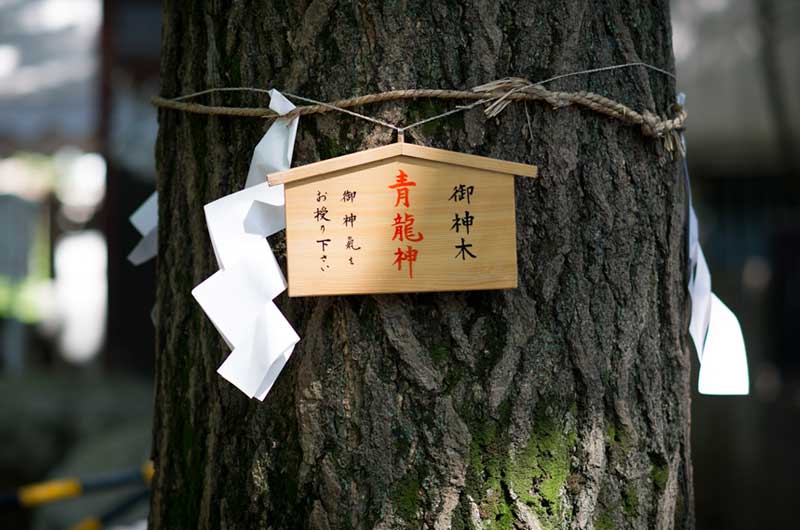 御神木
青龍神
御神氣を
お授り下さい